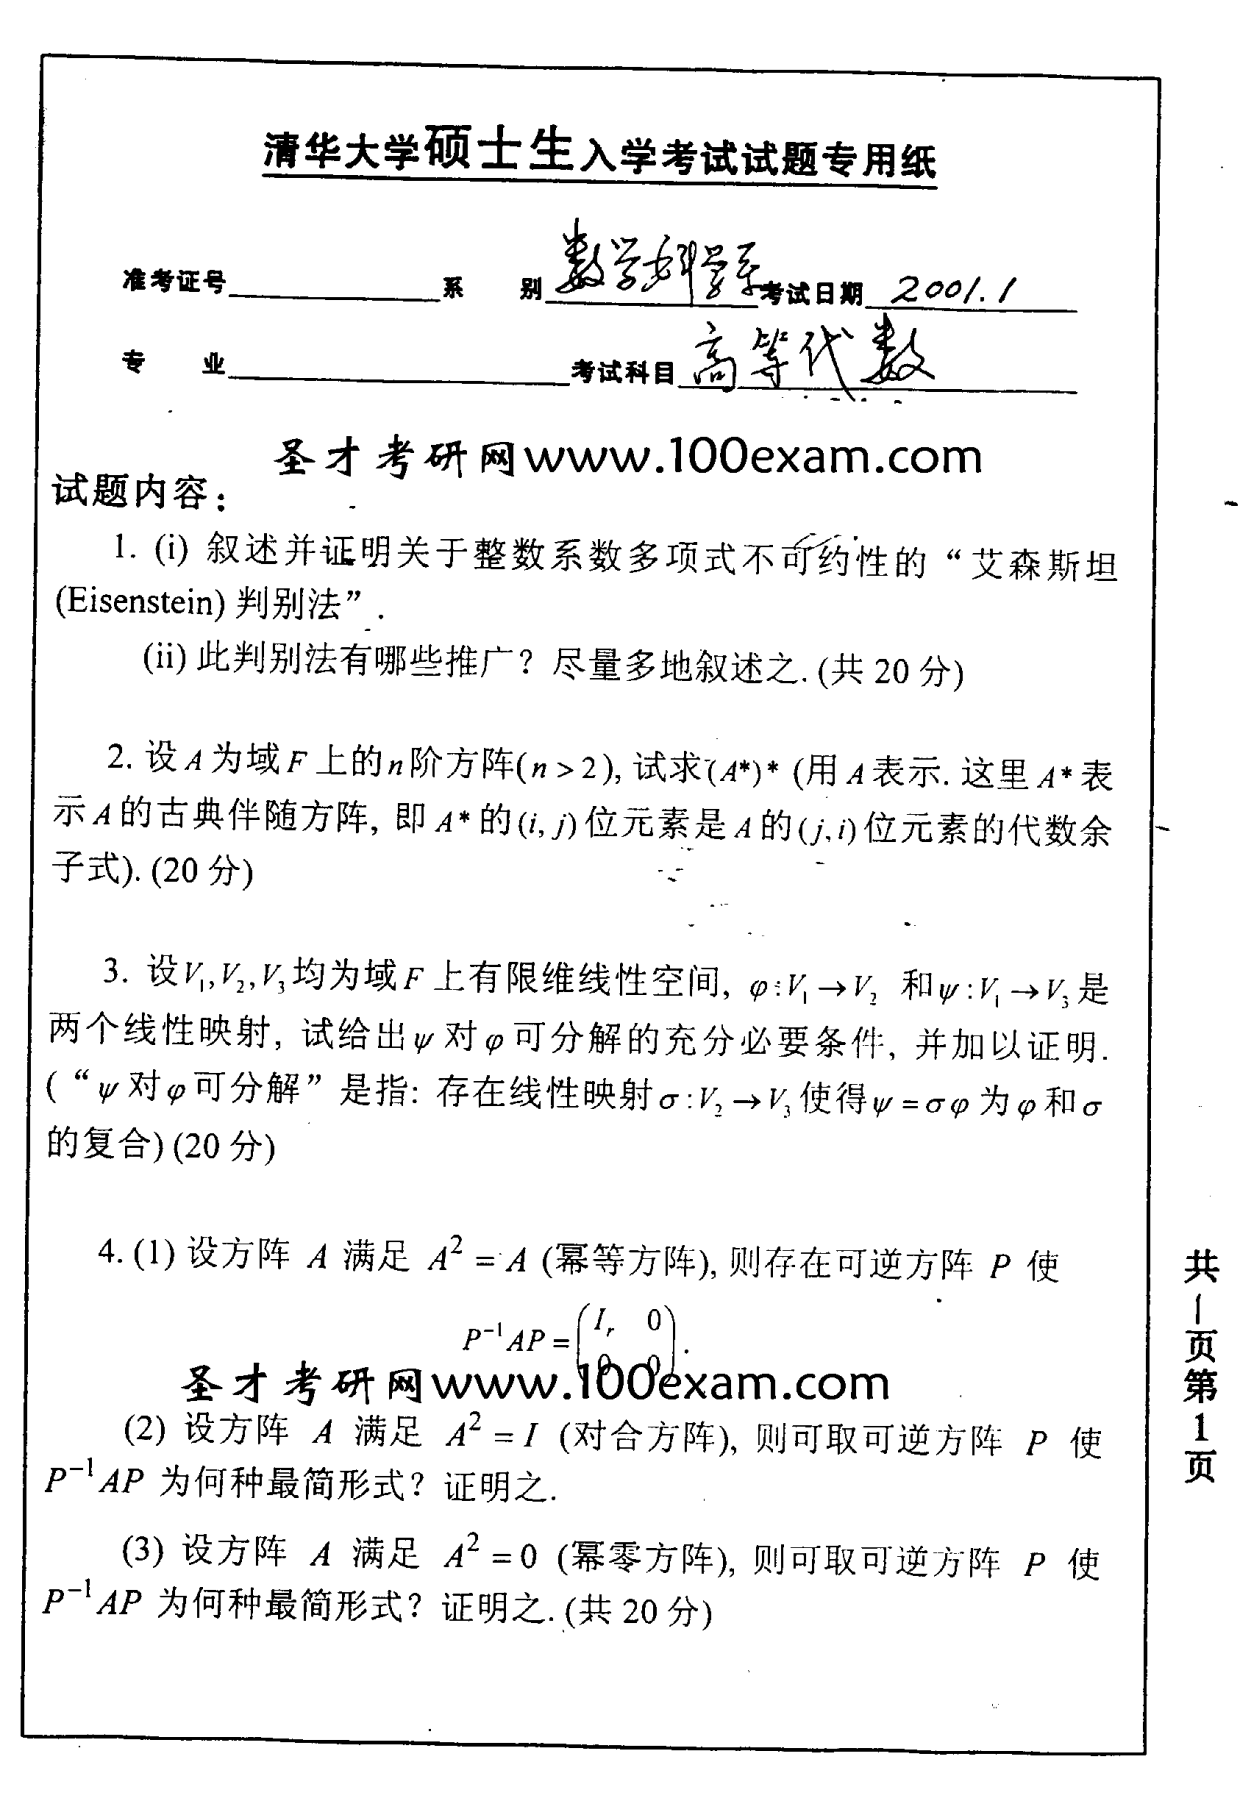 清华大学硕士生入学考试试题专用纸
准考证号 系 别 数学科学系 考试日期 2001.1
专 业 考试科目 高等代数
圣才考研网www.100exam.com
试题内容：
1. (i) 叙述并证明关于整数系数多项式不可约性的“艾森斯坦
(Eisenstein) 判别法”.
(ii) 此判别法有哪些推广？尽量多地叙述之. (共 20 分)
2. 设 A 为域 F 上的 n 阶方阵(n > 2), 试求(A*)* (用 A 表示. 这里 A* 表
示 A 的古典伴随方阵, 即 A* 的(i, j)位元素是 A 的(j, i)位元素的代数余
子式). (20 分)
3. 设V₁,V₂,V₃均为域 F 上有限维线性空间, φ:V₁→V₂ 和ψ:V₁→V₃是
两个线性映射, 试给出ψ对φ可分解的充分必要条件, 并加以证明.
(“ψ对φ可分解”是指: 存在线性映射σ:V₂→V₃使得ψ=σφ为φ和σ
的复合) (20 分)
4. (1) 设方阵 A 满足 A² = A (幂等方阵), 则存在可逆方阵 P 使
P⁻¹AP = (I_r 0
0 0).
圣才考研网www.100exam.com
(2) 设方阵 A 满足 A² = I (对合方阵), 则可取可逆方阵 P 使
P⁻¹AP 为何种最简形式？证明之.
(3) 设方阵 A 满足 A² = 0 (幂零方阵), 则可取可逆方阵 P 使
P⁻¹AP 为何种最简形式？证明之. (共 20 分)
共1页第1页